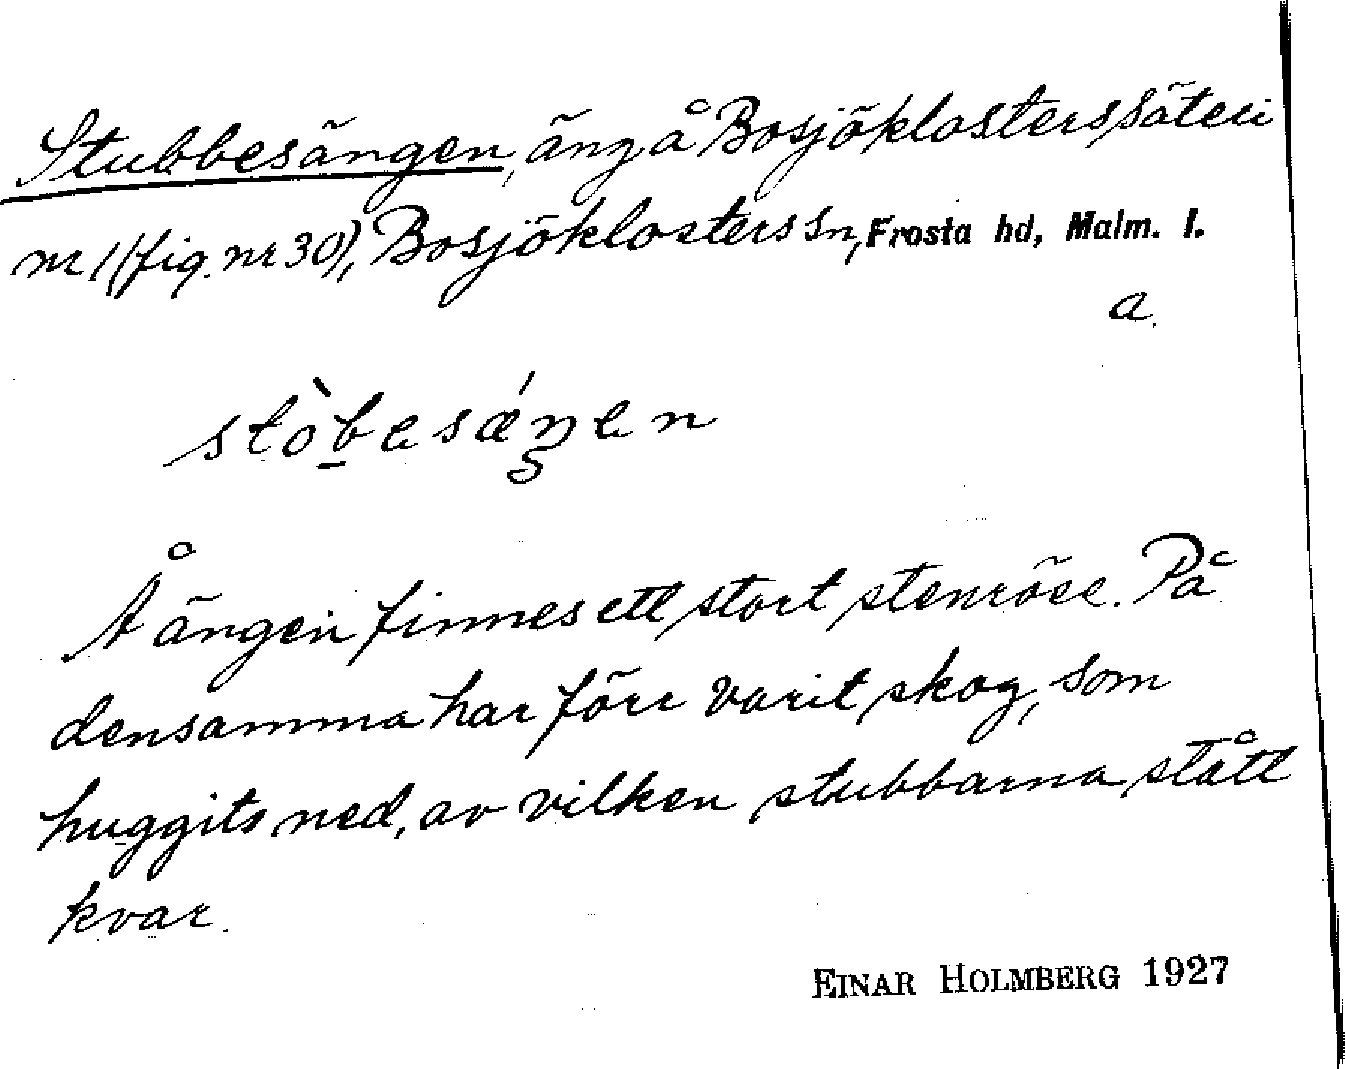 Stubbesängen, äng å Bosjöklosters säteri
nr 1 (fig. nr 30), Bosjöklosters sn, Frosta hd, Malm. l.
a.
stòbesǽŋen
Å ängen finnes ett stort stenröse. På
densamma har förr varit skog, som
huggits ned, av vilken stubbarna stått
kvar.
EINAR HOLMBERG 1927